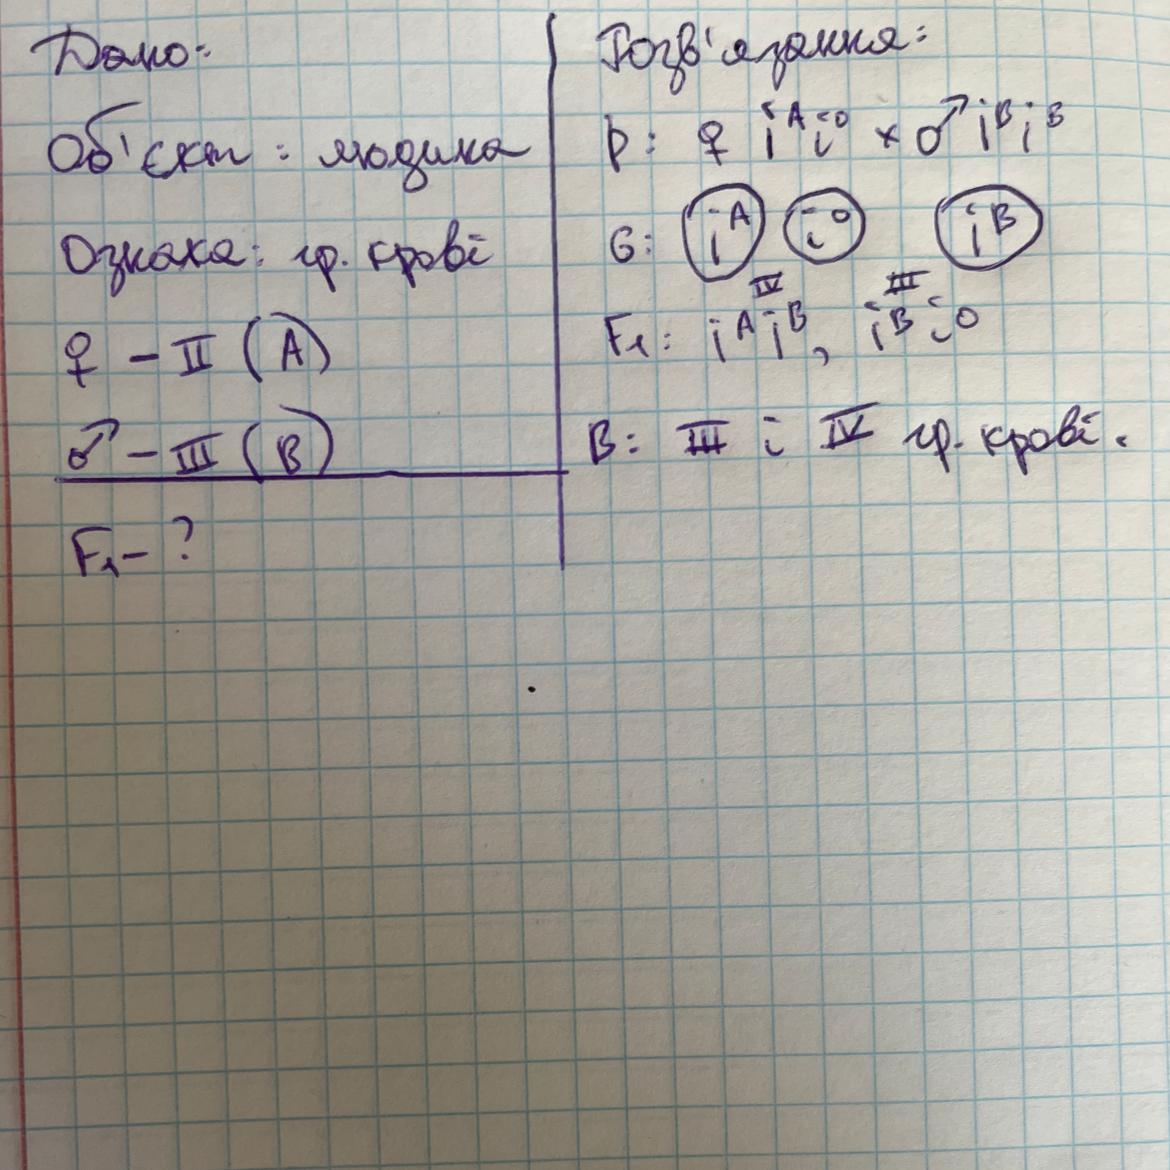 Дано:
Об'єкт: людина
Ознака: гр. крові
♀ – II (A)
♂ – III (B)
F₁ – ?
Розв'язання:
P: ♀ iᴬi⁰ × ♂ iᴮiᴮ
G: iᴬ i⁰ iᴮ
IV III
F₁: iᴬiᴮ, iᴮi⁰
В: III і IV гр. крові.